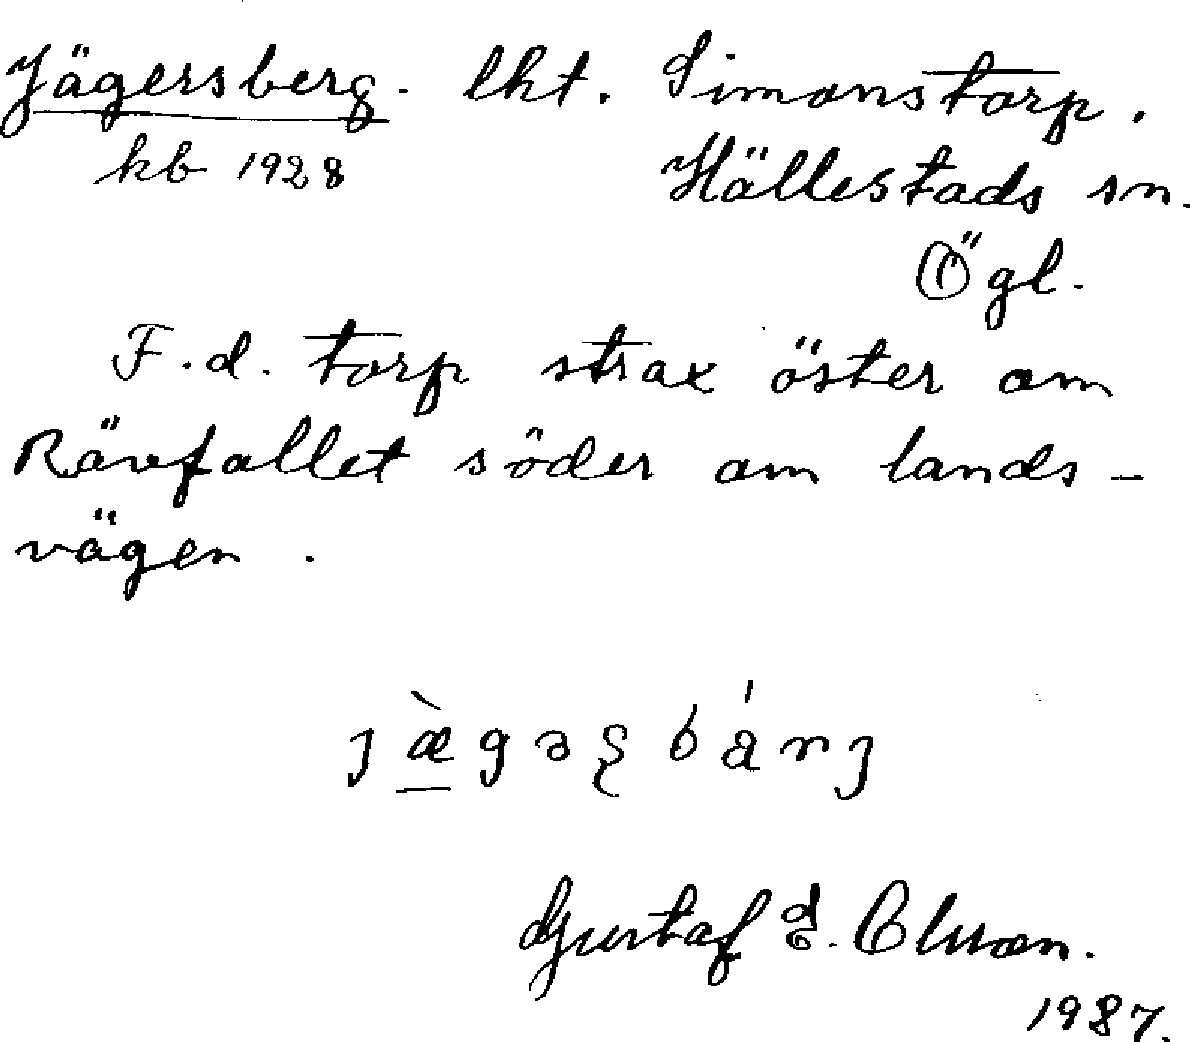 Jägersberg. lht. Simonstorp.
kb 1928 Hällestads sn.
Ögl.
F.d. torp strax öster om
Rävfallet söder om lands-
vägen.
Gustaf E.
1987.